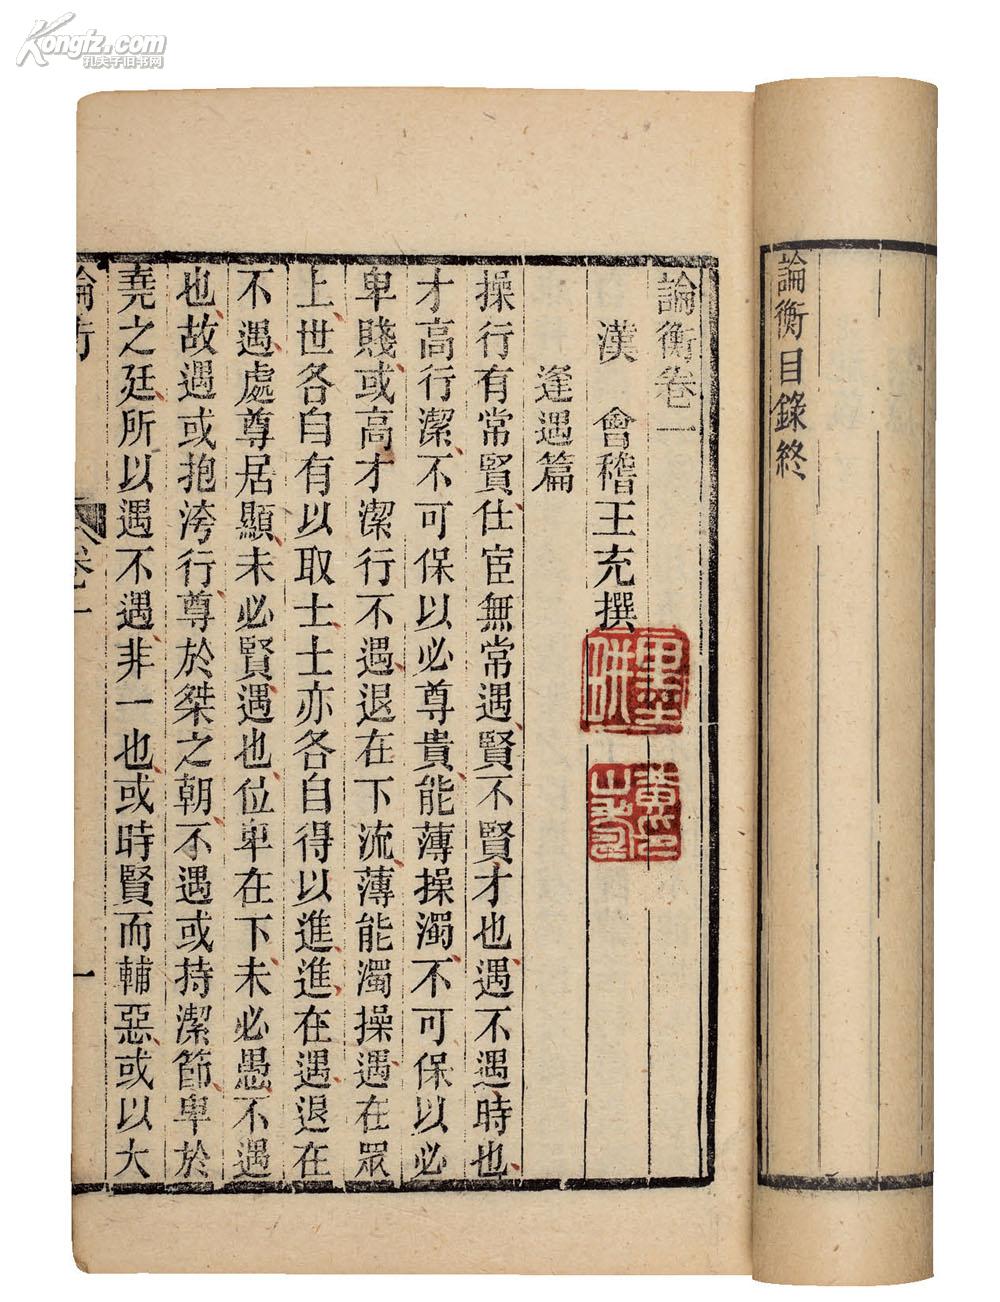 Kongfz.com
孔夫子旧书网
論衡目錄終
論衡卷一
漢 會稽王充撰
逢遇篇
操行有常賢仕宦無常遇賢不賢才也遇不遇時也
才高行潔不可保以必尊貴能薄操濁不可保以必
卑賤或高才潔行不遇退在下流薄能濁操遇在眾
上世各自有以取士士亦各自得以進進在遇退在
不遇處尊居顯未必賢遇也位卑在下未必愚不遇
也故遇或抱洿行尊於桀之朝不遇或持潔節卑於
堯之廷所以遇不遇非一也或時賢而輔惡或以大
論衡 卷一 一